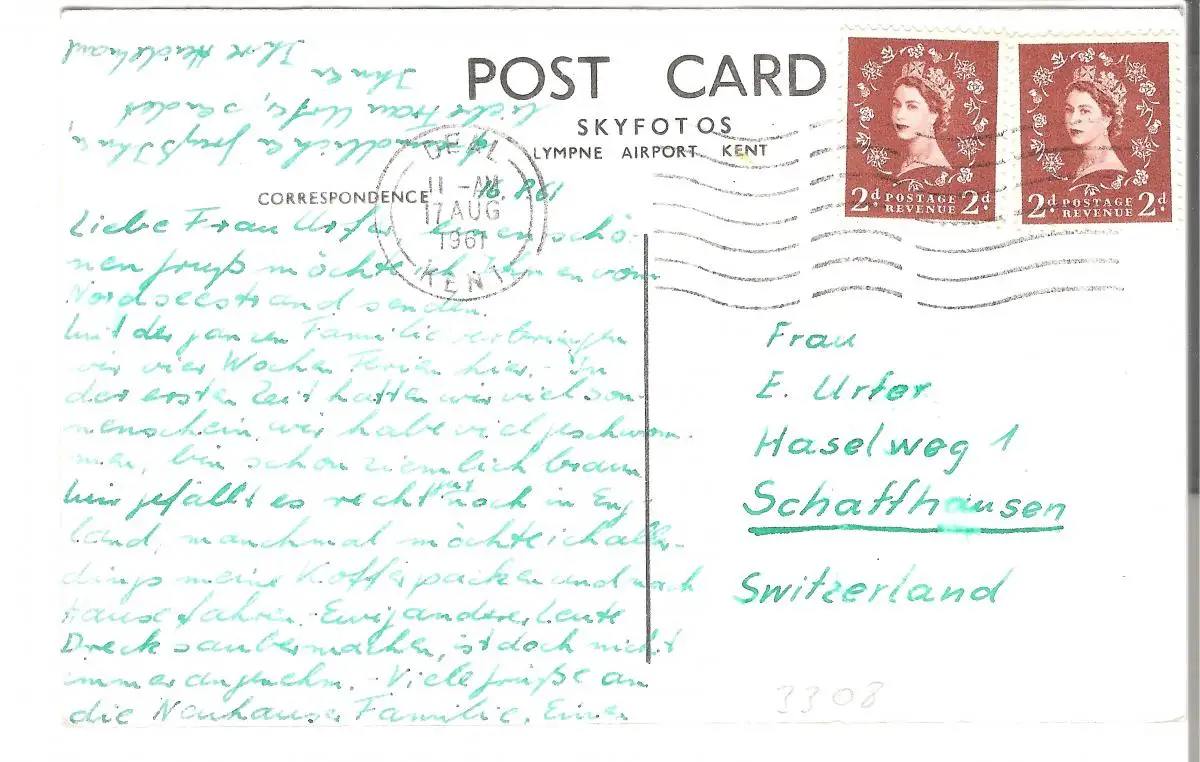 POST CARD
SKYFOTOS
LYMPNE AIRPORT KENT
CORRESPONDENCE
16.8.61
DEAL
11 - AM
17 AUG
1961
KENT
2d POSTAGE REVENUE 2d
2d POSTAGE REVENUE 2d
Liebe Frau Urfer, einen schö-
nen gruss möchte ich Ihnen vom
Nordseestrand senden.
Mit der ganzen Familie verbringen
wir vier Wochen Ferien hier. In
der ersten Zeit hatten wir viel son-
nenschein, wir habe viel geschwom-
men, bin schon ziemlich braun
hier gefällt es recht gut noch in Eng-
land, manchmal möchte ich aller-
dings meine Koffer packen und nach
Hause fahren. Ewig anderer Leute
Dreck saubermachen, ist doch nicht
immer angenehm. Viele grüße an
die Neuhauser Familie. Einen
herzlichen
liebe Frau Urfer, sendet
Ihnen
Ihre
Frau
E. Urfer
Haselweg 1
Schaffhausen
Switzerland
3308